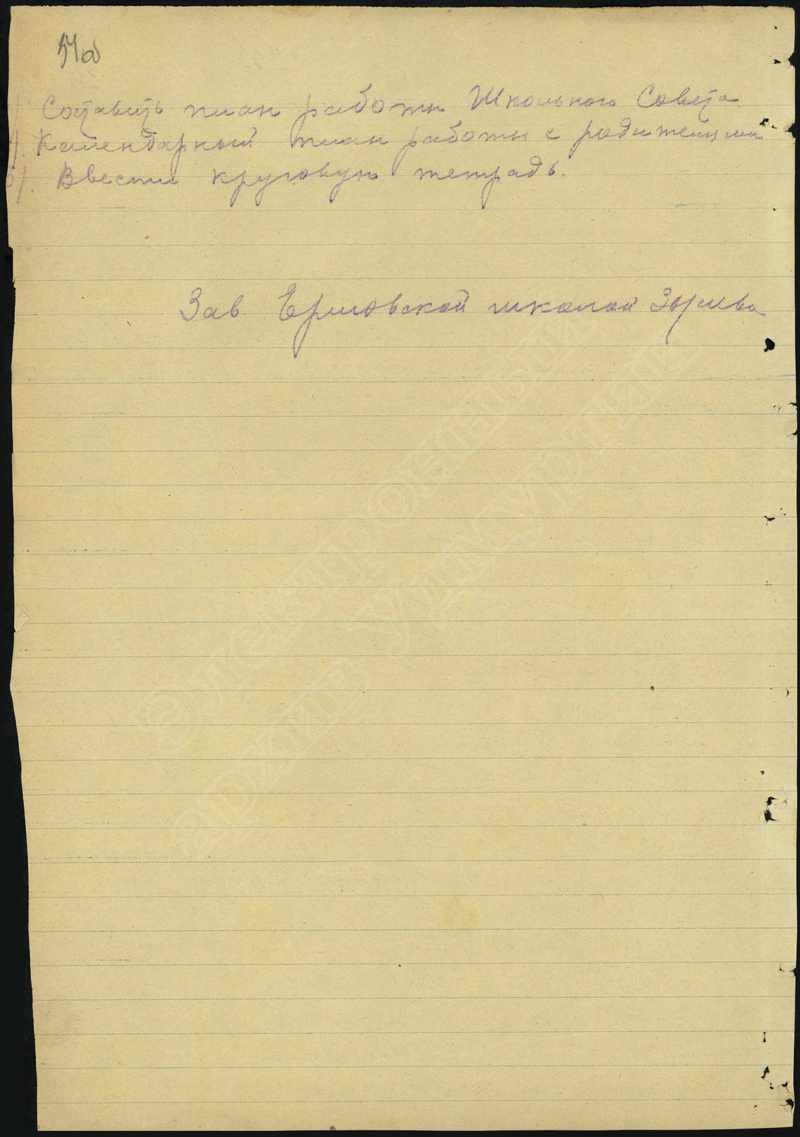 Составить план работы Школьного Совета
Календарный план работы с родителями
Ввести круговую тетрадь.
Зав школой
Электронный
архив Удмуртии